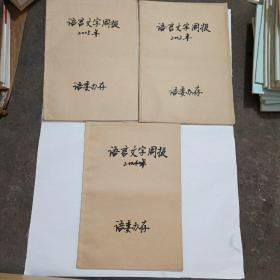 语言文字周报
2005年
语委办存
语言文字周报
2003年
语委办存
语言文字周报
2004年
语委办存